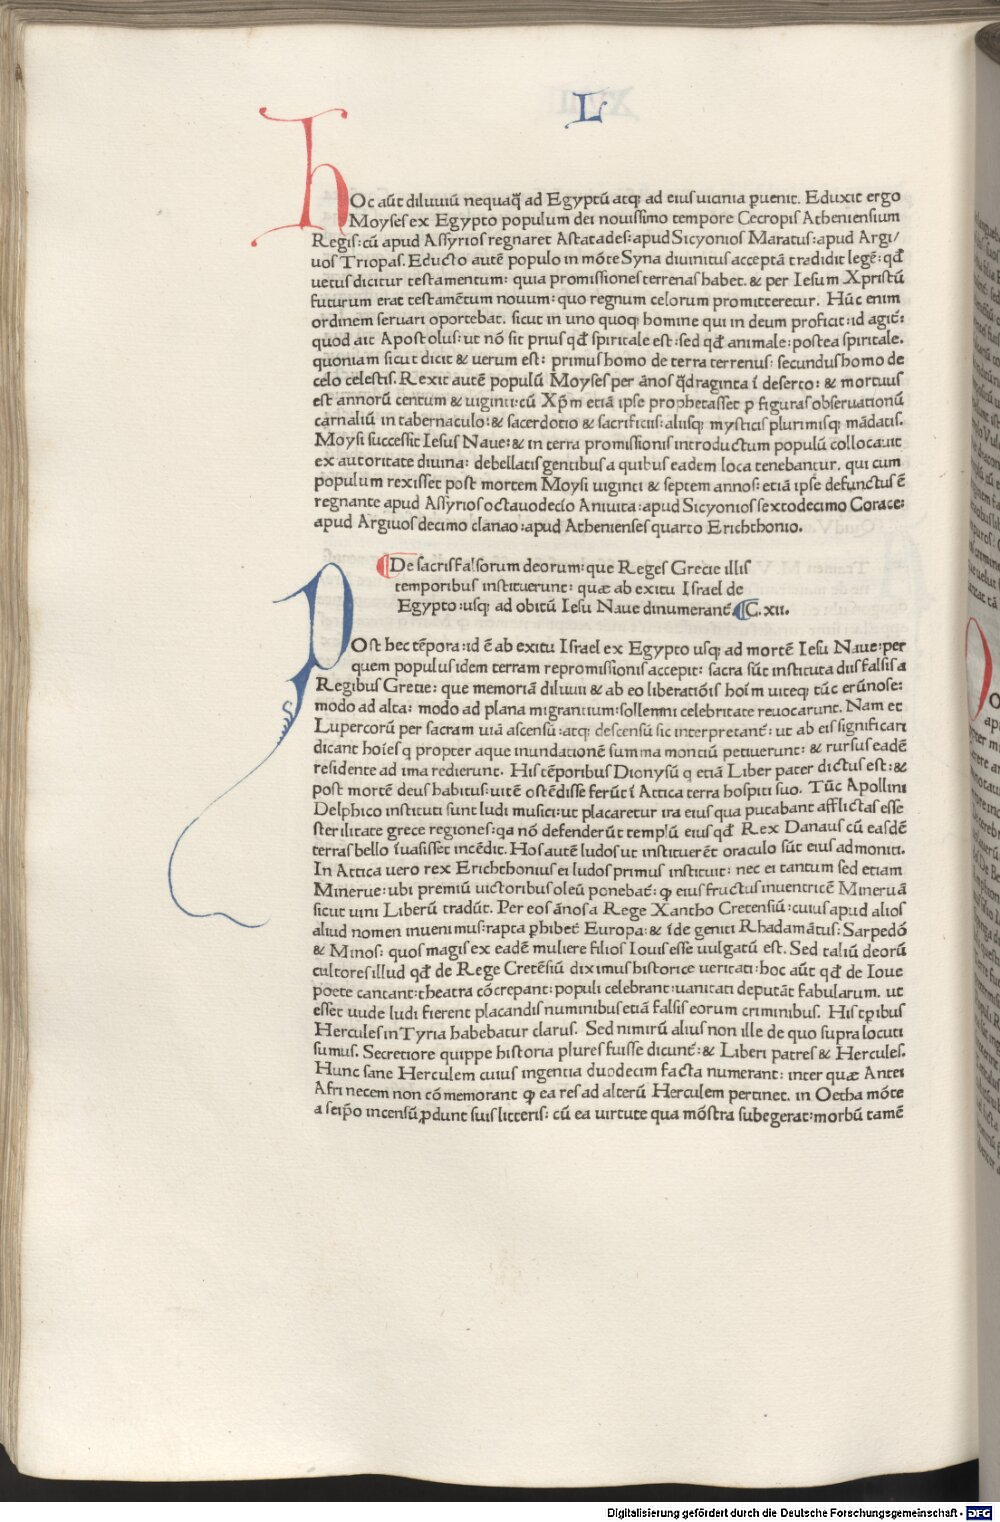 L
HOc aūt diluuiū nequaq̄ ad Egyptū atq; ad eius uicinia ꝑuenit. Eduxit ergo
Moyses ex Egypto populum dei nouissimo tempore Cecropis Atheniensium
Regis: cū apud Assyrios regnaret Astacades: apud Sicyonios Maratus: apud Argi/
uos Triopas. Educto autē populo in mōte Syna diuinitus acceptā tradidit legē: qđ
uetus dicitur testamentum: quia promissiones terrenas habet. & per Iesum Xpristū
futurum erat testamētum nouum: quo regnum celorum promitteretur. Hūc enim
ordinem seruari oportebat. sicut in uno quoq; homine qui in deum proficit: id agit̄:
quod ait Apostolus: ut nō sit prius qđ spiritale est: sed qđ animale: postea spiritale.
quoniam sicut dicit & uerum est: primus homo de terra terrenus: secundus homo de
celo celestis. Rexit autē populū Moyses per ānos q̄draginta ī deserto: & mortuus
est annorū centum & uiginti: cū Xp̄m etiā ipse prophetasset p figuras obseruationū
carnaliū in tabernaculo: & sacerdotio & sacrificiis: aliisq; mysticis plurimisq; mādatis.
Moysi successit Iesus Naue: & in terra promissionis introductum populū collocauit
ex autoritate diuina: debellatis gentibus a quibus eadem loca tenebantur. qui cum
populum rexisset post mortem Moysi uiginti & septem annos: etiā ipse defunctus ē
regnante apud Assyrios octauodecīo Aniuita: apud Sicyonios sextodecimo Corace:
apud Argiuos decimo clanao: apud Athenienses quarto Erichthonio.
De sacris falsorum deorum: que Reges Grecie illis
temporibus instituerunt: quæ ab exitu Israel de
Egypto: usq; ad obitū Iesu Naue dinumerant̄. C. xii.
POst hec tēpora: id ē ab exitu Israel ex Egypto usq; ad mortē Iesu Naue: per
quem populus idem terram repromissionis accepit: sacra sūt instituta diis falsis a
Regibus Grecie: que memoriā diluuii & ab eo liberatiōis hoīm uiteq; tūc erūnose:
modo ad alta: modo ad plana migrantium: sollemni celebritate reuocarunt. Nam et
Lupercorū per sacram uiā ascensū: atq; descensū sic interpretant̄: ut ab eis significari
dicant hoīes q propter aque inundationē summa montiū petiuerunt: & rursus eadē
residente ad ima redierunt. His tēporibus Dionysiū q etiā Liber pater dictus est: &
post mortē deus habitus: uitē ostēdisse ferūt ī Attica terra hospiti suo. Tūc Apollini
Delphico instituti sunt ludi musici: ut placaretur ira eius qua putabant afflictas esse
sterilitate grece regiones: qa nō defenderūt templū eius qđ Rex Danaus cū easdē
terras bello īuasisset incēdit. Hos autē ludos ut instituerēt oraculo sūt eius admoniti.
In Attica uero rex Erichthonius ei ludos primus instituit: nec ei tantum sed etiam
Minerue: ubi premiū uictoribus oleū ponebat̄: ꝙ eius fructus inuentricē Mineruā
sicut uini Liberū tradūt. Per eos ānos a Rege Xantho Cretensiū: cuius apud alios
aliud nomen inuenimus: rapta ꝑhibet̄ Europa: & īde geniti Rhadamātus: Sarpedō
& Minos: quos magis ex eadē muliere filios Iouis esse uulgatū est. Sed taliū deorū
cultores illud qđ de Rege Cretēsiū diximus historice ueritati: hoc aūt qđ de Ioue
poete cantant: theatra cōcrepant: populi celebrant: uanitati deputāt fabularum. ut
esset uude ludi fierent placandis numinibus etiā falsis eorum criminibus. His tp̄ibus
Hercules in Tyria habebatur clarus. Sed nimirū alius non ille de quo supra locuti
sumus. Secretiore quippe historia plures fuisse dicunt̄: & Liberi patres & Hercules.
Hunc sane Herculem cuius ingentia duodecim facta numerant: inter quæ Antei
Afri necem non cōmemorant ꝙ ea res ad alterū Herculem pertinet. in Oetha mōte
a seip̄o incensū, ꝓdunt suis litteris: cū ea uirtute qua mōstra subegerat: morbū tamē
Digitalisierung gefördert durch die Deutsche Forschungsgemeinschaft - DFG